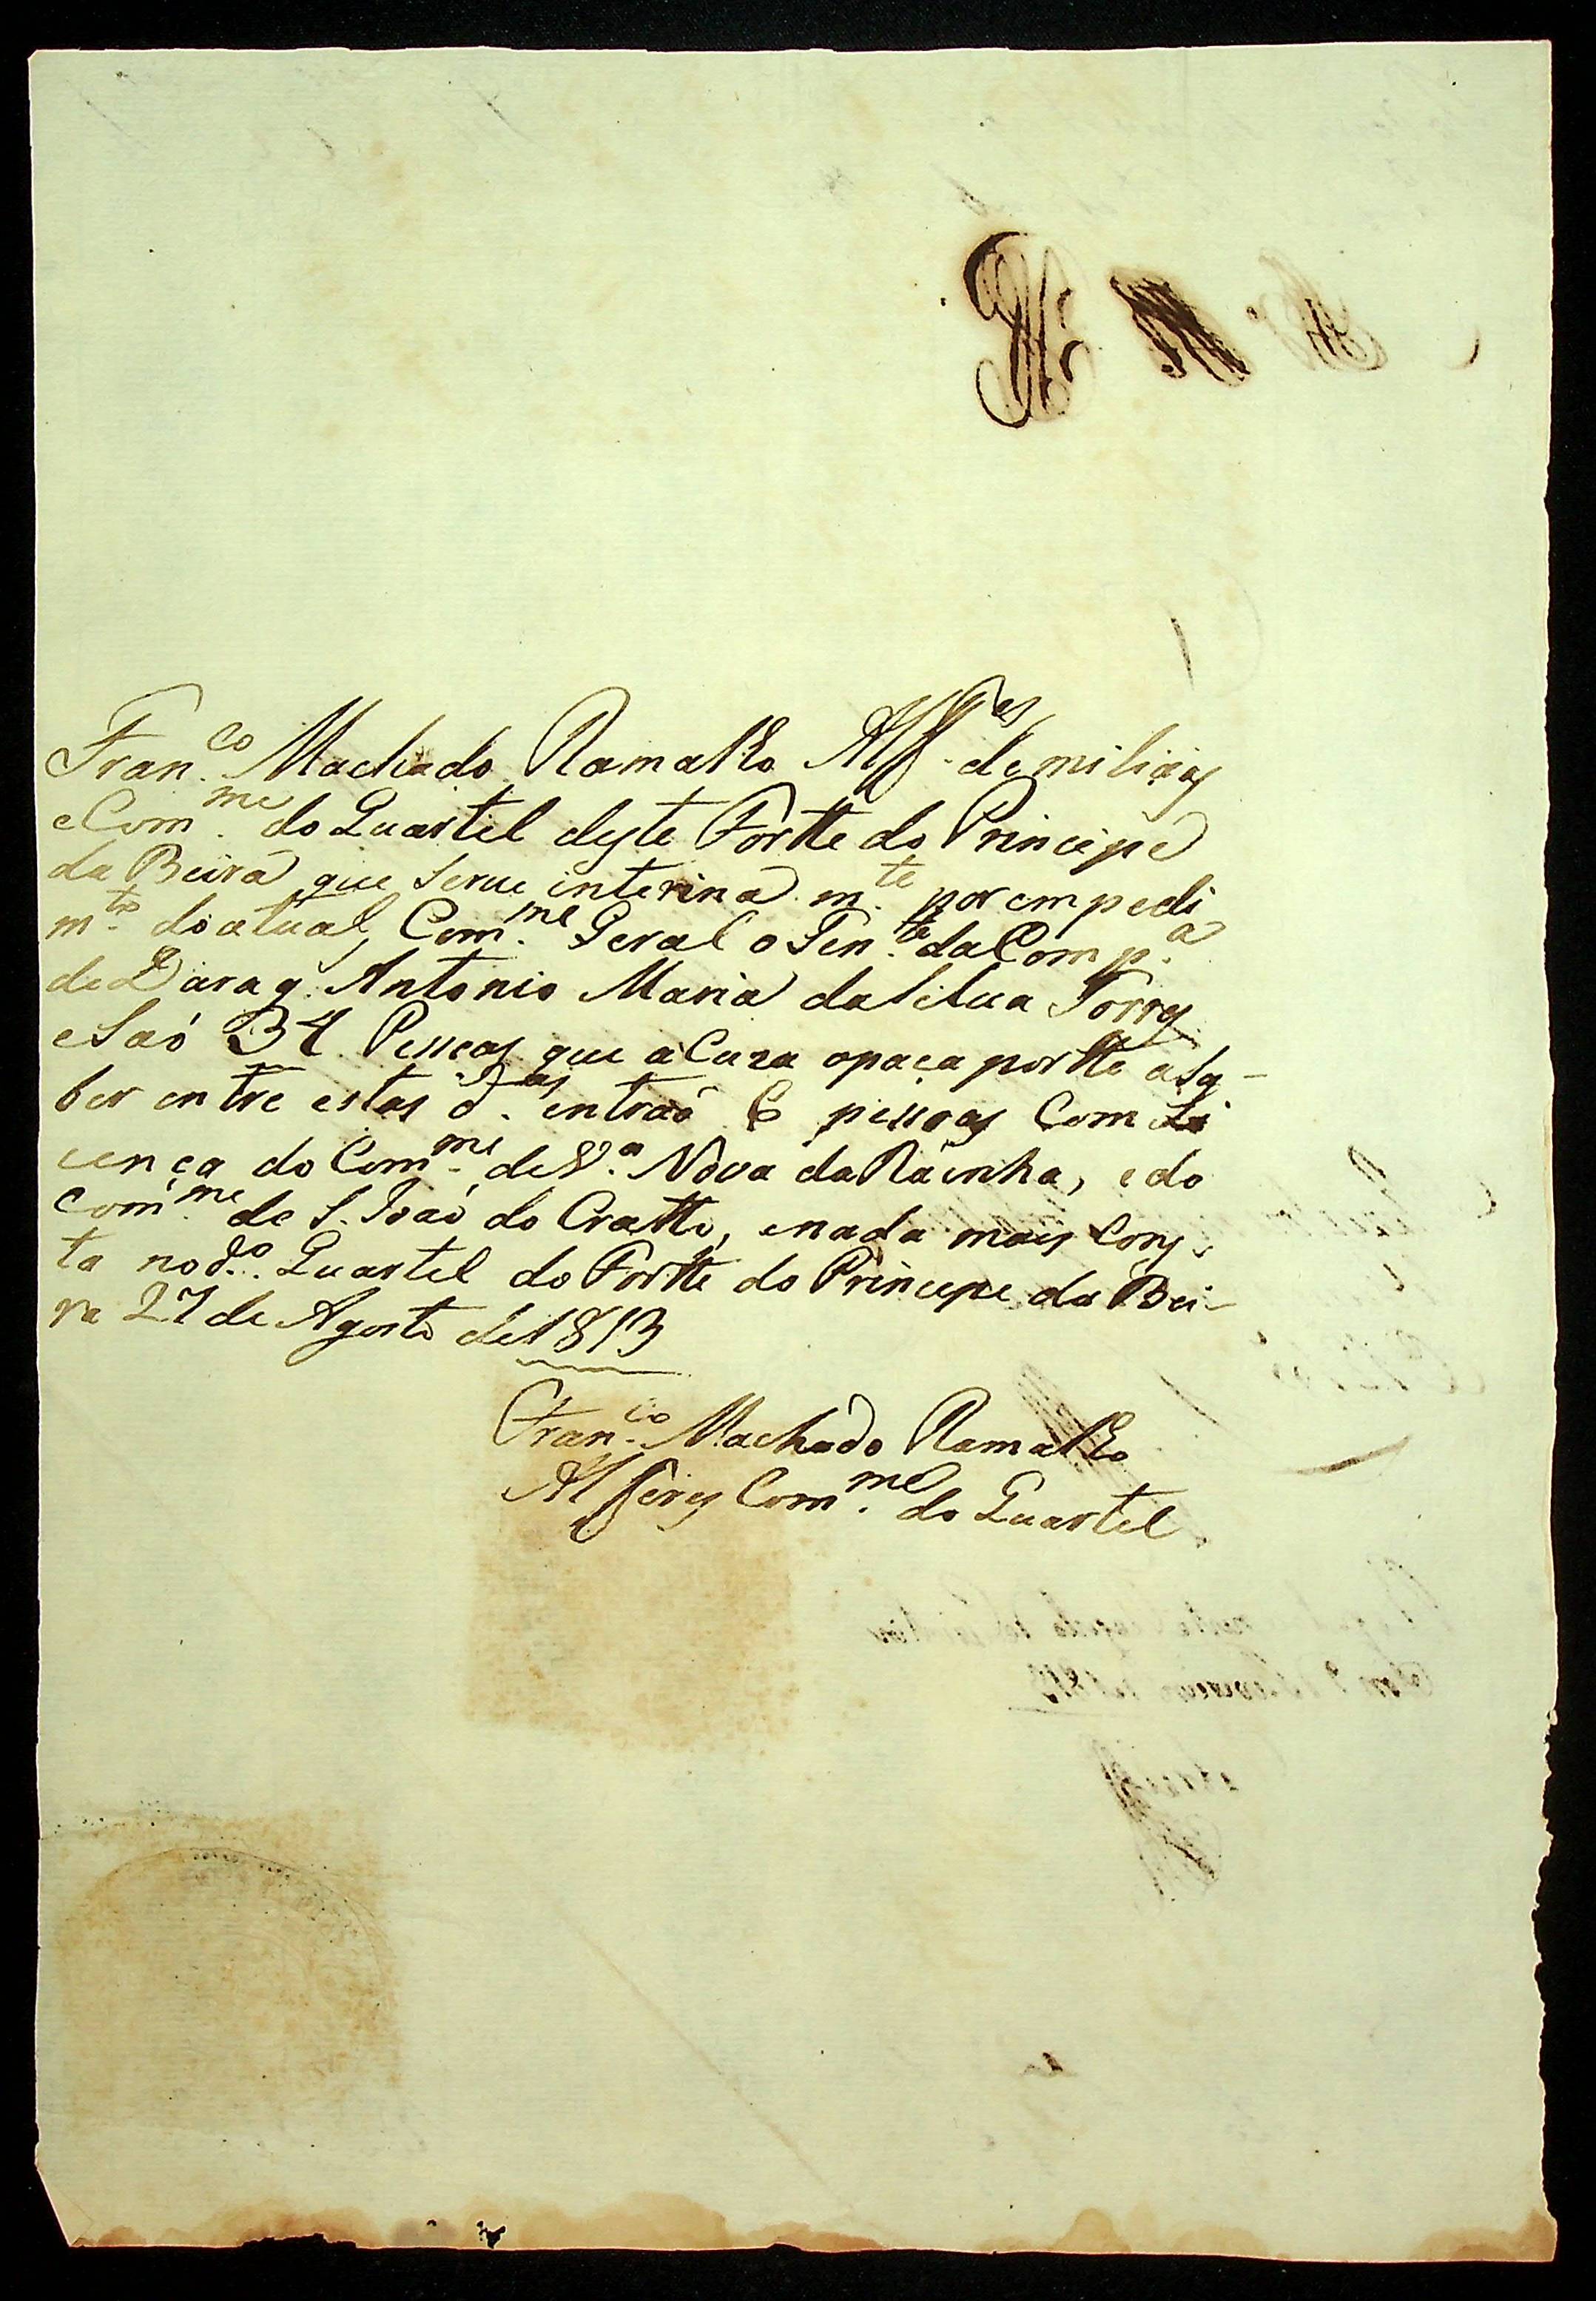 Fran.co Machado Ramalho Alf.es de miliciaz
e Com.me do Quartel deste Fortte do Principe
da Beira que serve interina m.te por empedi
m.to do atual Com.me Geral o Ten.te da Comp.a
de Antonio Maria da Silva Torrez
e Saó 34 Pessoas que acuza opaça portte asa-
ber entre estas d.as entraõ 6 pessoas Com Li
cença do Com.me de V.a Nova da Rainha, e do
Com.me de S. Joaó do Cratto, enada mais Cons-
ta no d.o Quartel do Fortte do Principe da Bei-
ra 27 de Agosto de 1813
Fran.co Machado Ramalho
Alferes Com.me do Quartel